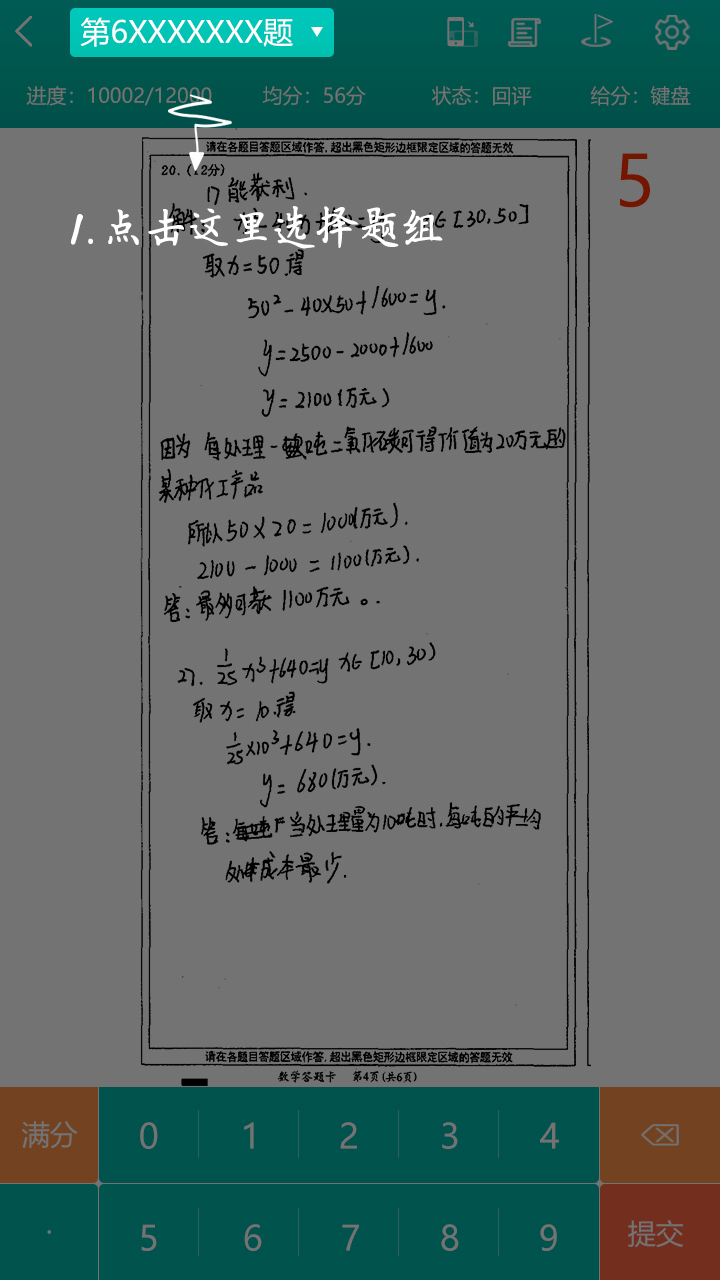 第6XXXXXXX题
进度：10002/12000 均分：56分 状态：回评 给分：键盘
请在各题目答题区域作答，超出黑色矩形边框限定区域的答题无效
5
20.（12分）
1) 能获利.
1.点击这里选择题组
∈[30,50]
取x=50得
50²-40×50+1600=y.
y=2500-2000+1600
y=2100(万元)
因为 每处理一吨二氧化碳可得价值为20万元的
某种化工产品
所以50×20=1000(万元).
2100-1000=1100(万元).
答:最多可获1100万元。
27. 1/25x³+640=y x∈[10,30)
取x=10.得
1/25×10³+640=y.
y=680(万元).
答: 当处理量为10吨时,每吨的平均
成本最少.
请在各题目答题区域作答，超出黑色矩形边框限定区域的答题无效
数学答题卡 第4页(共6页)
满分 0 1 2 3 4
. 5 6 7 8 9 提交